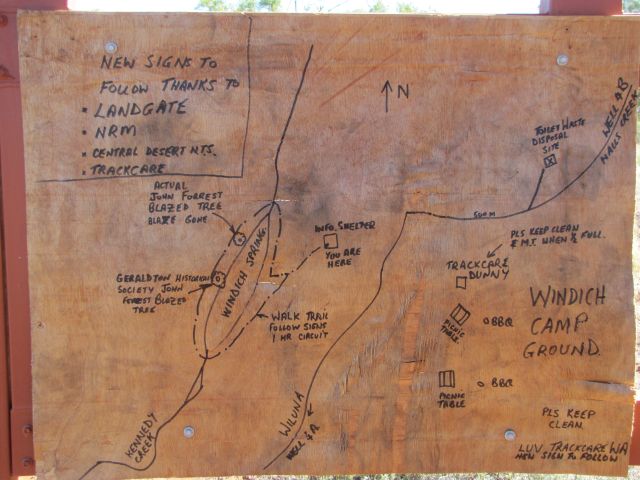 NEW SIGNS TO
FOLLOW THANKS TO
• LANDGATE
• NRM
• CENTRAL DESERT N.T.S.
• TRACKCARE
N
ACTUAL
JOHN FORREST
BLAZED TREE
BLAZE GONE
GERALDTON HISTORICAL
SOCIETY JOHN
FORREST BLAZED
TREE
WINDICH SPRING
INFO. SHELTER
YOU ARE
HERE
WALK TRAIL
FOLLOW SIGNS
1 HR CIRCUIT
KENNEDY
CREEK
WILUNA
WELL 4A
500M
TOILET WASTE
DISPOSAL
SITE
X
WELL 4B
HALLS CREEK
PLS KEEP CLEAN
& M.T. WHEN ½ FULL.
TRACKCARE
DUNNY
PICNIC
TABLE
BBQ
PICNIC
TABLE
BBQ
WINDICH
CAMP
GROUND
PLS KEEP
CLEAN
LUV TRACKCARE WA
NEW SIGN TO FOLLOW